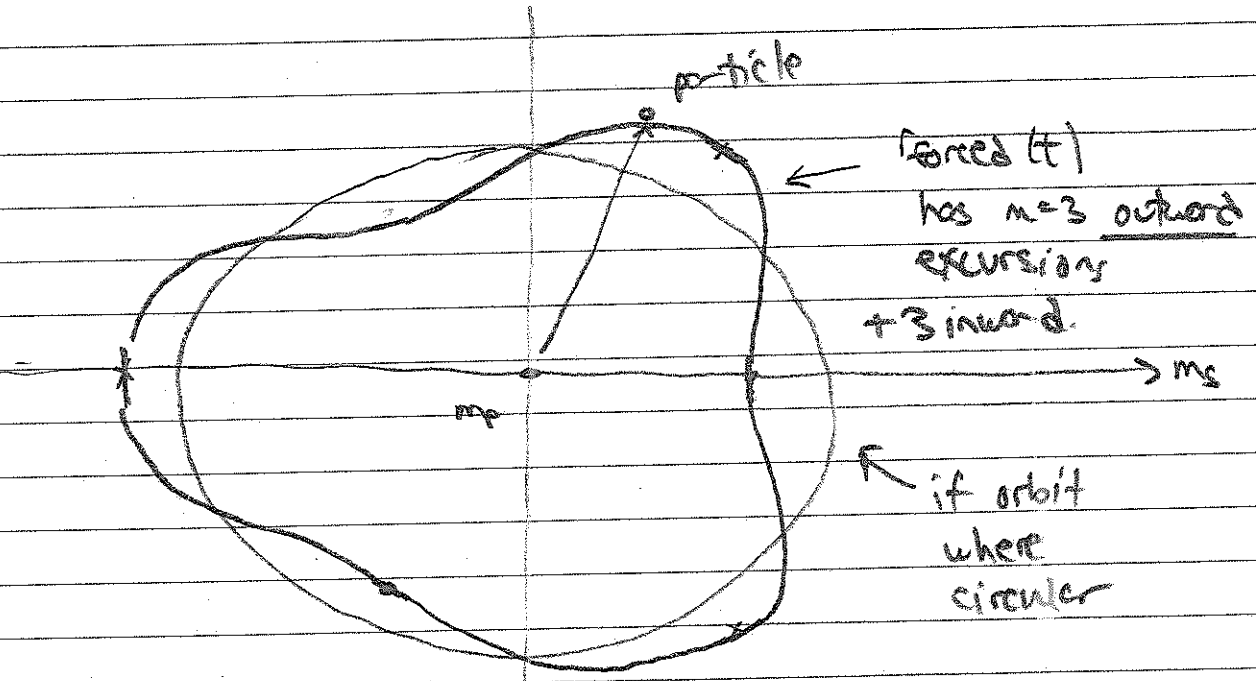 particle
r forced (t)
has m=3 outward
excursions
+ 3 inward.
mp
ms
if orbit
where
circular